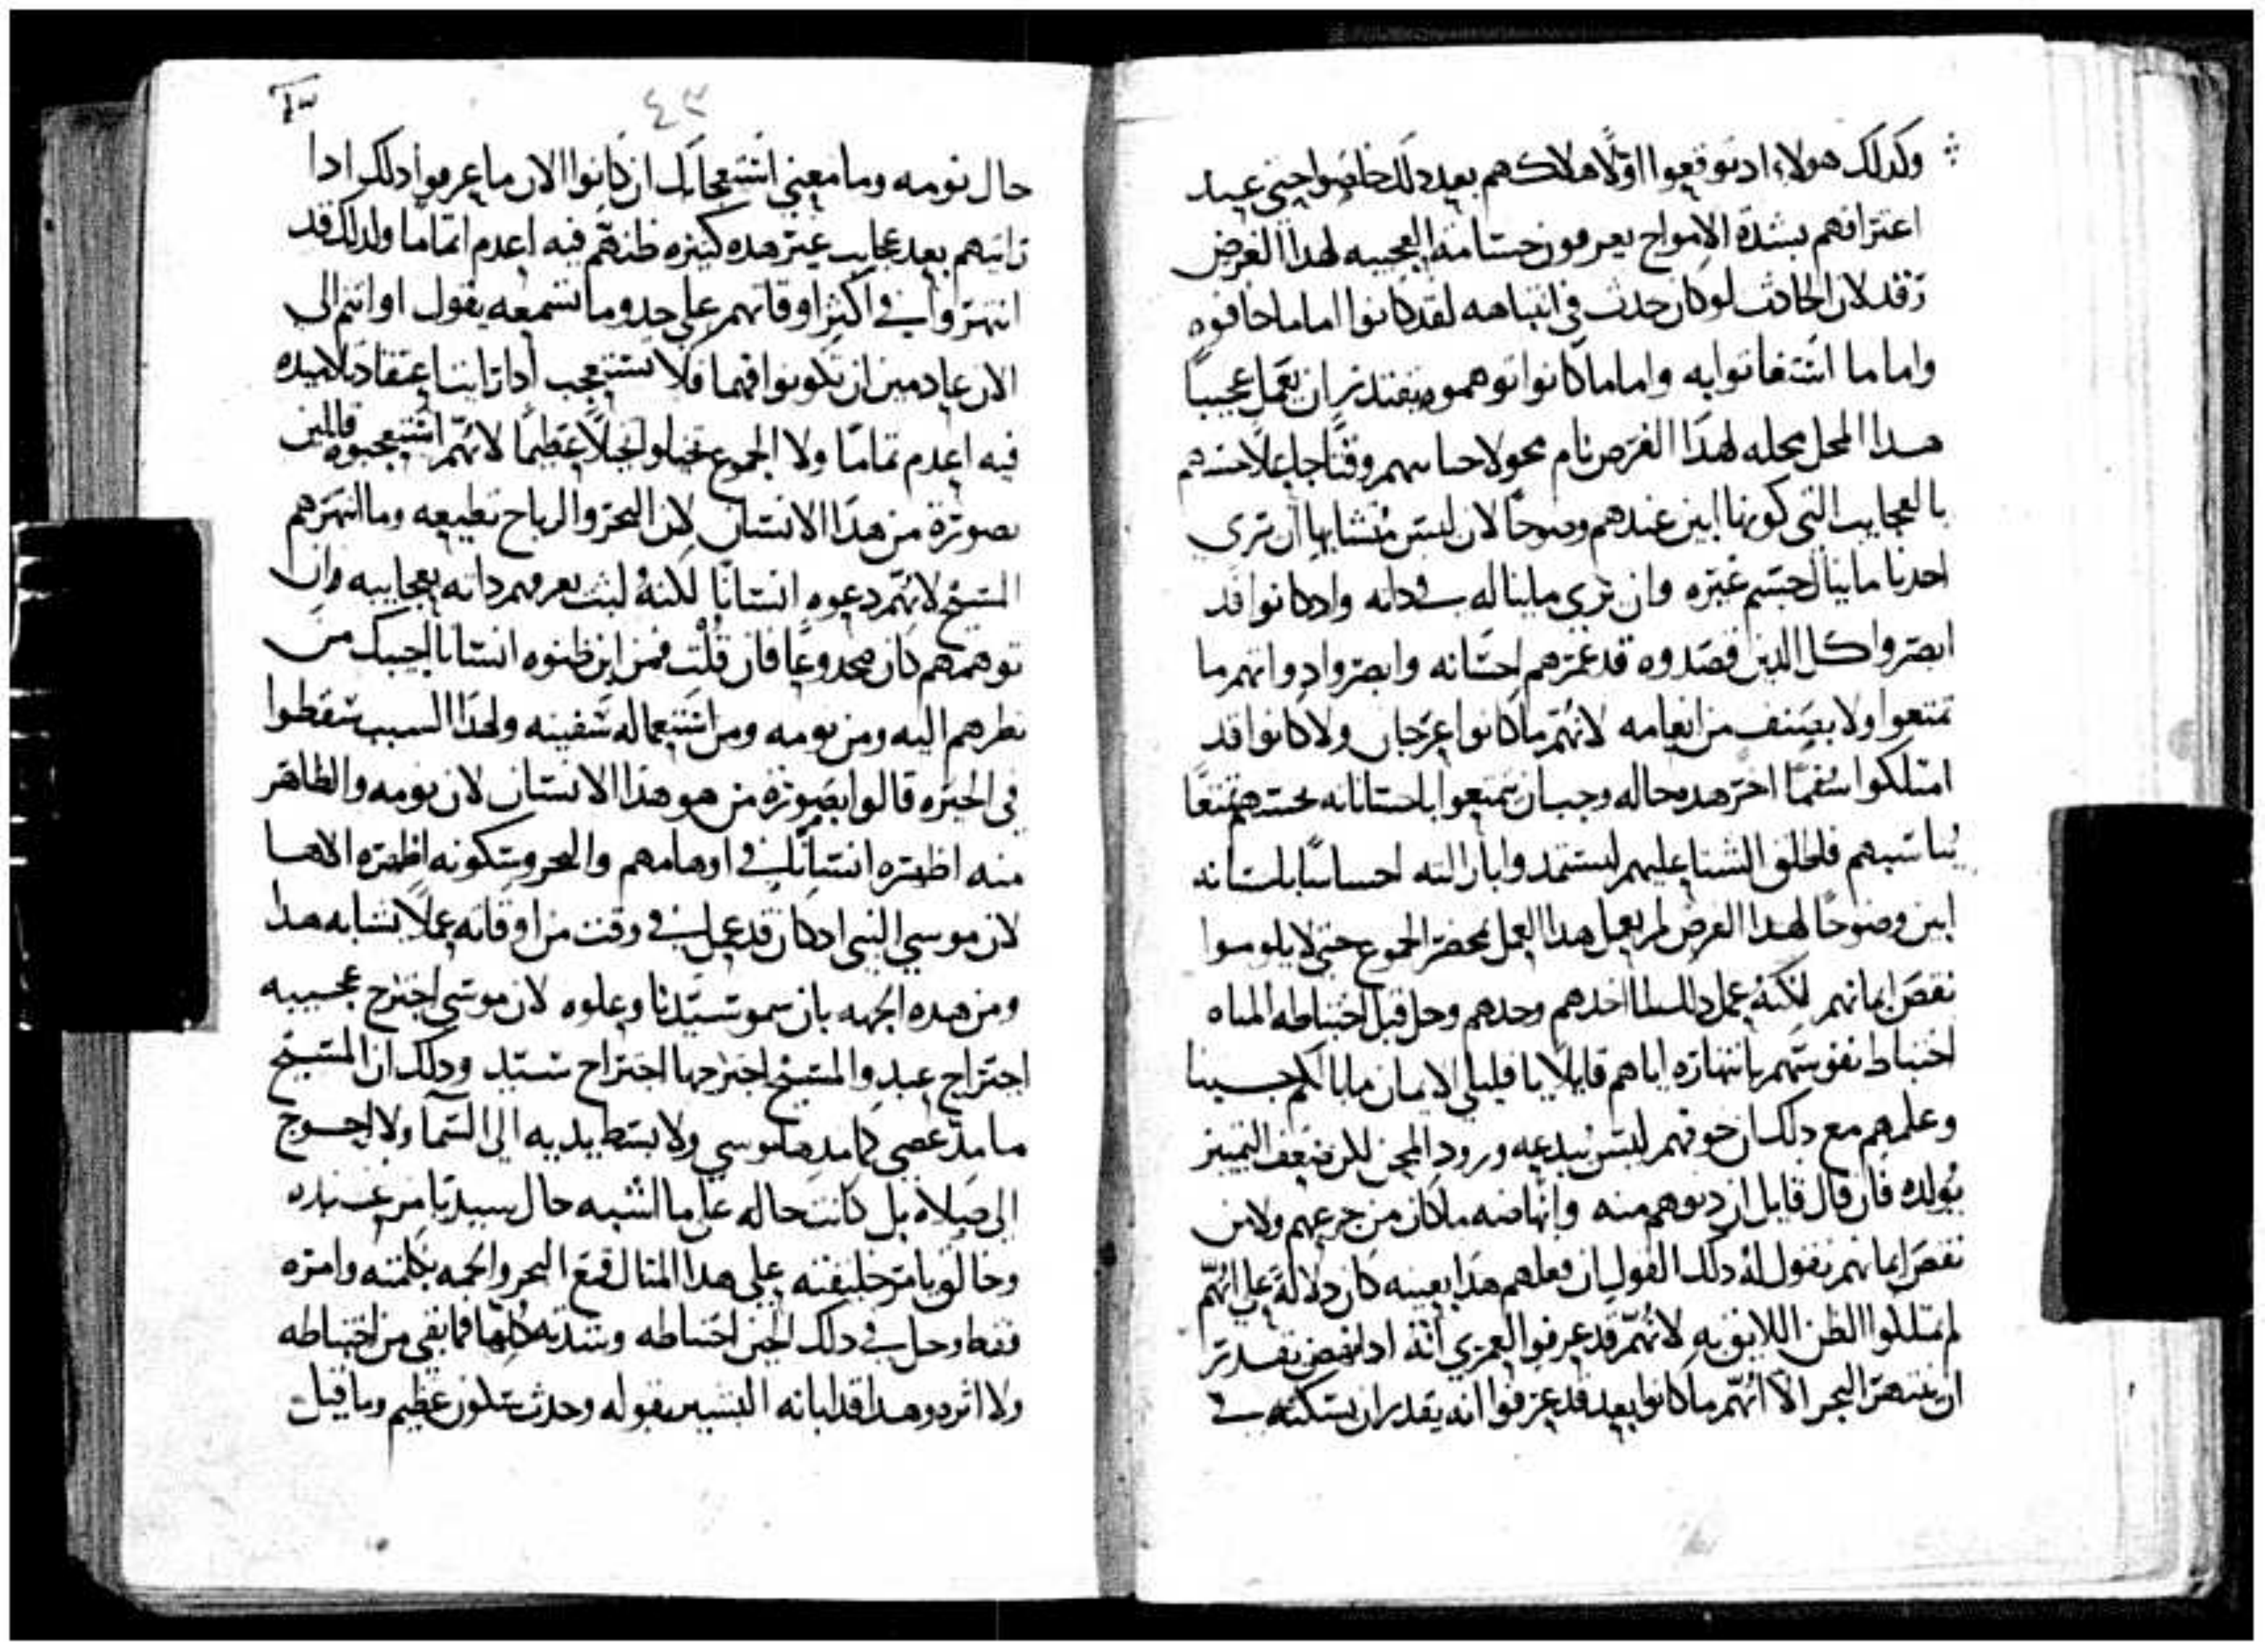 وكدلك هولاء اد توقعوا اولًا هلاكهم بعد دلك خلصوا حيني عيد
اعترافهم بشدة الامواج يعرفون حسامة العجيبه لهدا الغرض
رقد لان الحادث لو كان حدث في انتباهه لقد كانوا اما ما خافوه
واما ما استغاثوا به واما ما كانوا توهموه يقتدر ان يعمل عجيبًا
هدا المحل محله لهدا الغرض نام محولا حبا نهم وقتًا جاعلا حسهم
بالعجايب التي كونها ابين عندهم وضوحًا لان ليس متشابها ان تري
احدنا ما ينال جسم غيره وان يري ما يناله في داته واد كانوا قد
ابصروا كل الدين قصدوه قد غمرهم احسانه وابصروا دواتهم ما
تمتعوا ولا بصنف من انعامه لانهم ما كانوا عرجان ولا كانوا قد
امتلكوا سقمًا اخر هده حاله وجب ان يتمتعوا باحساناته بحسهم تمتعًا
يناسبهم فاطلق الشتا عليهم ليستمدوا بازالته احساسًا باحسانه
ابين وضوحًا لهدا الغرض لم يعمل هدا العمل بمحضر الجموع حتي لا يلوموا
نقص ايمانهم لكنه عمل دلك لما اخدهم وحدهم وحل قبل اختباطه المياه
اختباط نفوسهم بانتهاره اياهم قايلا يا قليلي الايمان ما بالكم جبينا
وعلمهم مع دلك ان خوفهم ليس يبدعه ورود المحن لكن ضعف التمييز
يولده فان قال قايل ان دنوهم منه وانهاضه ما كان من جزعهم ولا من
نقص ايمانهم نقول له دلك القول ان فعلهم هدا بعينه كان دلالة علي انهم
لم يمتلكوا الظن اللايق به لانهم قد عرفوا لعمري انه اد انهض يقدر
ان ينتهر البحر الا انهم ما كانوا بعد قد عرفوا انه يقدر ان يسكنه في
٤٣
حال نومه وما معني استعجابك ان كانوا الان ما عرفوا دلك ادا
رايتهم بعد عجايب غير هده كثيره ظنهم فيه اعدم اتمامًا ولدلك قد
انتهروا في اكثر اوقاتهم علي حدو ما تسمعه يقول او انتم الي
الان عادمين ان تكونوا فهما فلا تستعجب ادا راينا اعتقاد تلاميده
فيه اعدم تمامًا ولا الجموع تخيلوا تخيلًا عظيمًا لانهم استعجبوه قايلين
بصورة من هدا الانسان لان البحر والرياح تطيعه وما انتهرهم
المسيح لانهم دعوه انسانًا لكنه لبث يعرفهم داته بعجايبه وان
توهمهم كان مخدوعًا فان قلت فمن اين ظنوه انسانا اجيبك من
نظرهم اليه ومن نومه ومن استعماله سفينه ولهدا السبب سقطوا
في الحيره قالوا بصورة من هو هدا الانسان لان نومه والظاهر
منه اظهره انسانًا في اوهامهم والبحر وسكونه اظهره الاها
لان موسي النبي اد كان قد عمل في وقت من اوقاته عملا يشابه هدا
ومن هده الجهه بان سمو سيدنا وعلوه لان موسي اجترح عجيبه
اجتراح عبد والمسيح اجترحها اجتراح سيد ودلك ان المسيح
ما مد عصي كما مدها موسي ولا بسط يديه الي السما ولا احوج
الي صلاه بل كانت حاله علي ما الشبه حال سيد يامر عبيده
وخالق يامر خليقته علي هدا المثال قمع البحر والجمه بكلمته وامره
فقط وحل في دلك الحين اختباطه وشدته كلها فما بقي من اختباطه
ولا اثر وهدا قد ابانه البشير بقوله وحدث سكون عظيم وما قيل